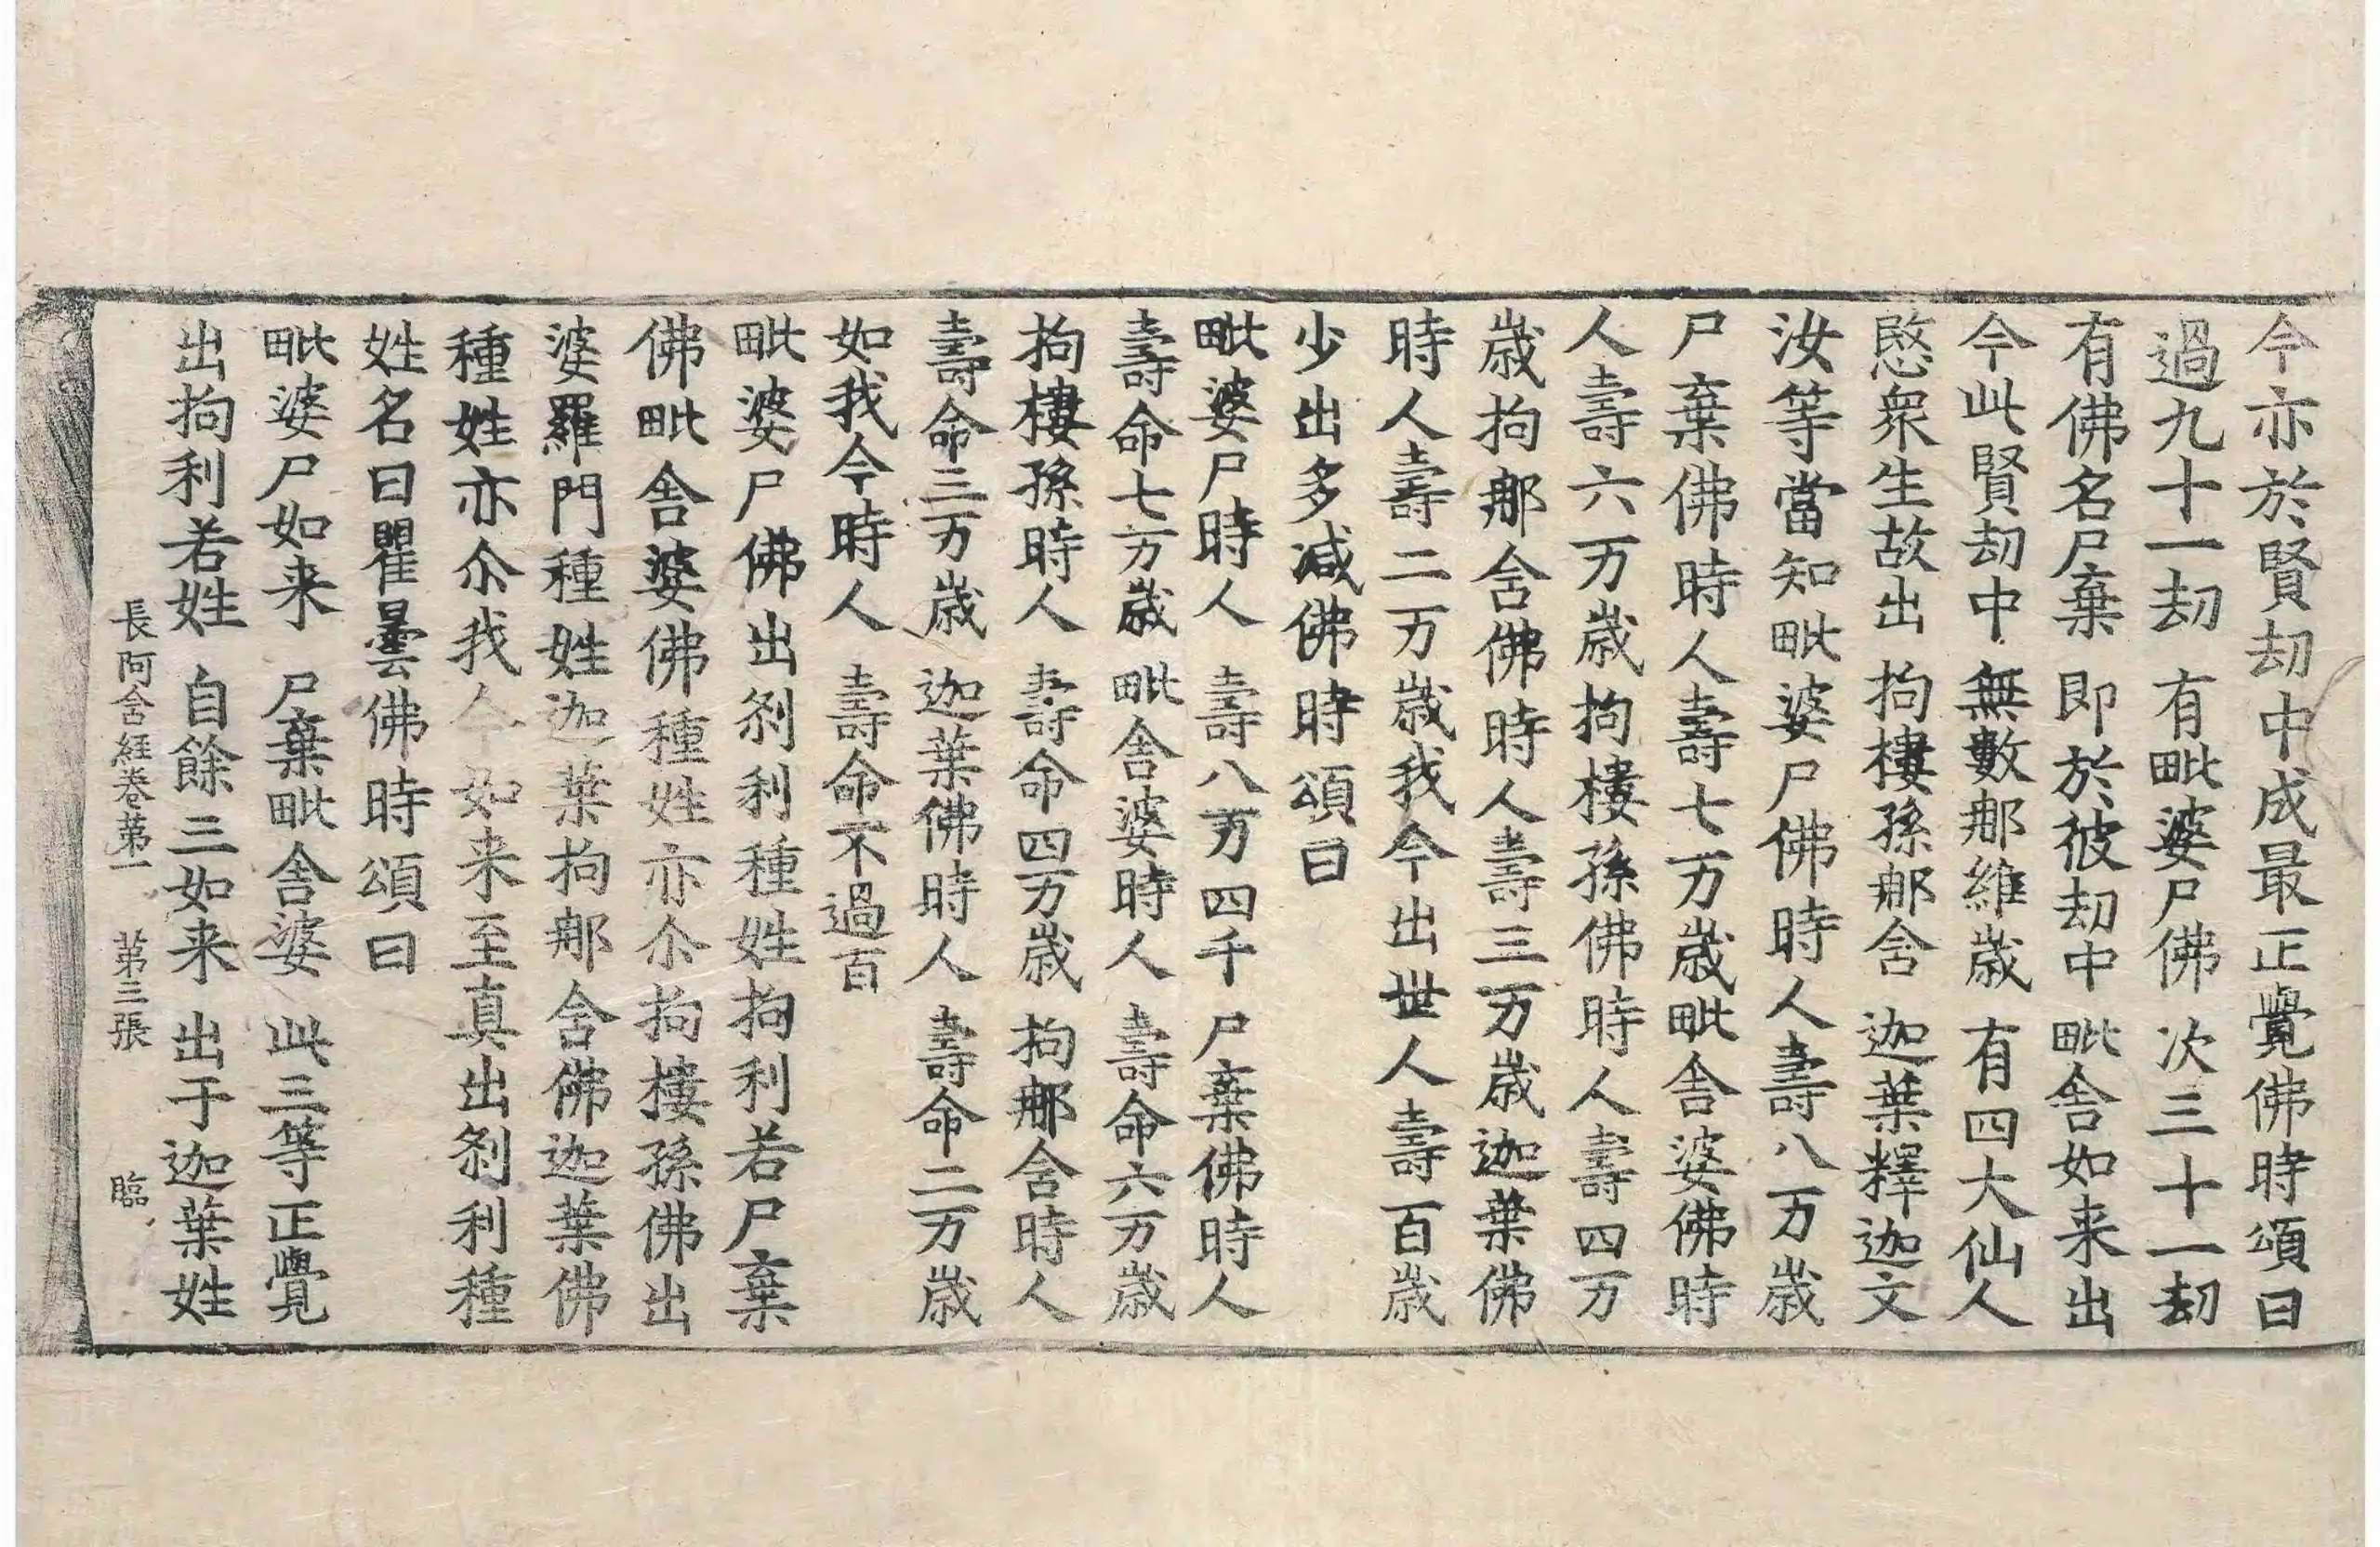 今亦於賢刧中成最正覺佛時頌曰
過九十一刧　有毗婆尸佛　次三十一刧
有佛名尸棄　即於彼刧中　毗舍如来出
今此賢刧中　無數那維歲　有四大仙人
愍衆生故出　拘樓孫那含　迦葉釋迦文
汝等當知毗婆尸佛時人壽八万歲
尸棄佛時人壽七万歲毗舍婆佛時
人壽六万歲拘樓孫佛時人壽四万
歲拘那含佛時人壽三万歲迦葉佛
時人壽二万歲我今出世人壽百歲
少出多減佛時頌曰
毗婆尸時人　壽八万四千　尸棄佛時人
壽命七万歲　毗舍婆時人　壽命六万歲
拘樓孫時人　壽命四万歲　拘那含時人
壽命三万歲　迦葉佛時人　壽命二万歲
如我今時人　壽命不過百
毗婆尸佛出刹利種姓拘利若尸棄
佛毗舍婆佛種姓亦尒拘樓孫佛出
婆羅門種姓迦葉拘那含佛迦葉佛
種姓亦尒我今如来至真出刹利種
姓名曰瞿曇佛時頌曰
毗婆尸如来　尸棄毗舍婆　此三等正覺
出拘利若姓　自餘三如来　出于迦葉姓
長阿含經卷苐一　苐三張　臨